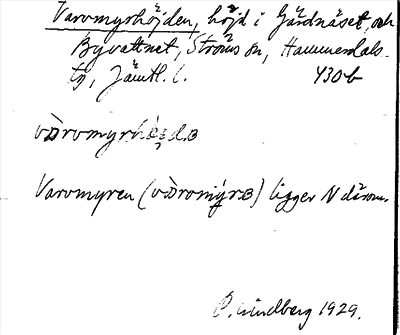 Varomyrhöjden, höjd i Gärdnäset, och
Byvattnet, Ströms sn, Hammerdals
tg, Jämtl. l. 430b
Varomyren (vòromýrɜ) ligger N därom.
Lindberg 1929.